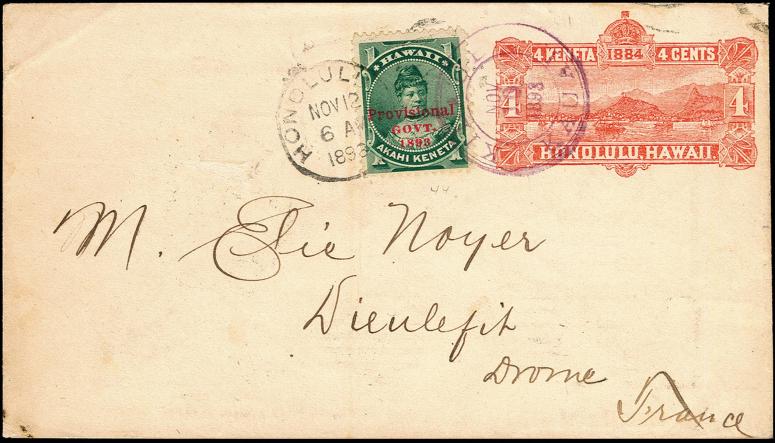 HONOLULU
NOV 12
6 AM
1893
1 HAWAII 1
Provisional
GOVT.
1893
AKAHI KENETA
4 KENETA 1884 4 CENTS
4 4
HONOLULU, HAWAII.
44
M. Elie Noyer
Dieulefit
Drome
France